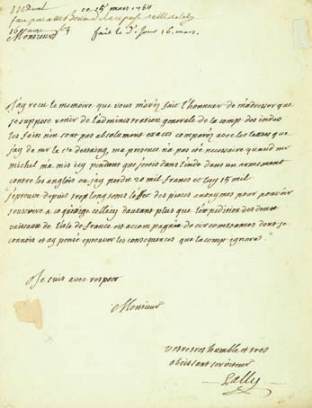 ce 15e mars 1764
Monsieur
fait le d. jour 16. mars.
J'ay recu le memoire que vous m'avés fait l'honneur de m'adresser que
je suppose venir de l'administration generale de la comp. des indes
les faits n'en sont pas absolument exacts comparés avec les lettres que
j'ay de mr le cte dessaing, ma presence n'a pas eté necessaire quand mr
michel m'a mis icy pendant que j'etois dans l'inde dans un armement
contre les anglois ou j'ay perdu 20 mil francs et luy 15 mil
j'eprouve depuis trop long tems l'effet des pieces anonymes pour pouvoir
souscrire a ce
celle cy dautant plus que l'expedition des deux
vaisseaux de l'isle de france est accompagnée de circonstances dont je
connois et ay pensé eprouver les consequences que la comp. ignore
Je suis avec respect
Monsieur
Votre tres humble et tres
obeissant serviteur
Lally